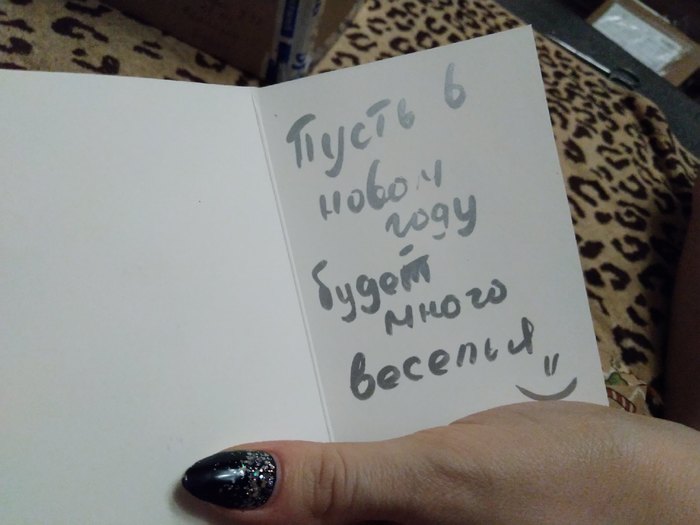 Пусть в
новом
году
будет
много
веселья